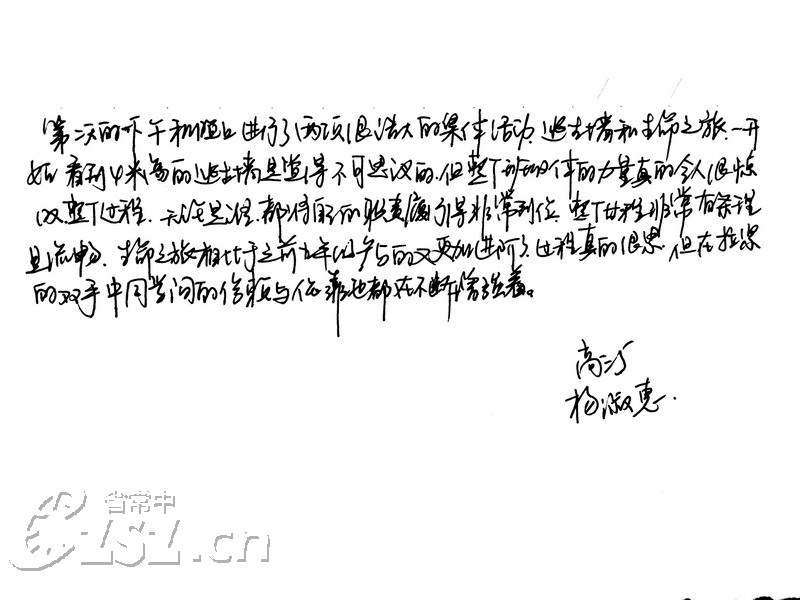 第二天的下午和晚上进行了两项很浩大的集体活动,逃生墙和生命之旅,一开
始看到4米高的逃生墙是觉得不可思议的,但整个班级团体的力量真的令人很惊
叹,整个过程,无论是谁,都将自己的职责履行得非常到位,整个过程非常有条理
且流畅。生命之旅相比于之前五年级参与的又更加进阶了,过程真的很累,但在拉紧
的双手中同学间的信赖与依靠也都在不断增强着。
高
杨淑惠.
省常中
CZSLSZ.cn